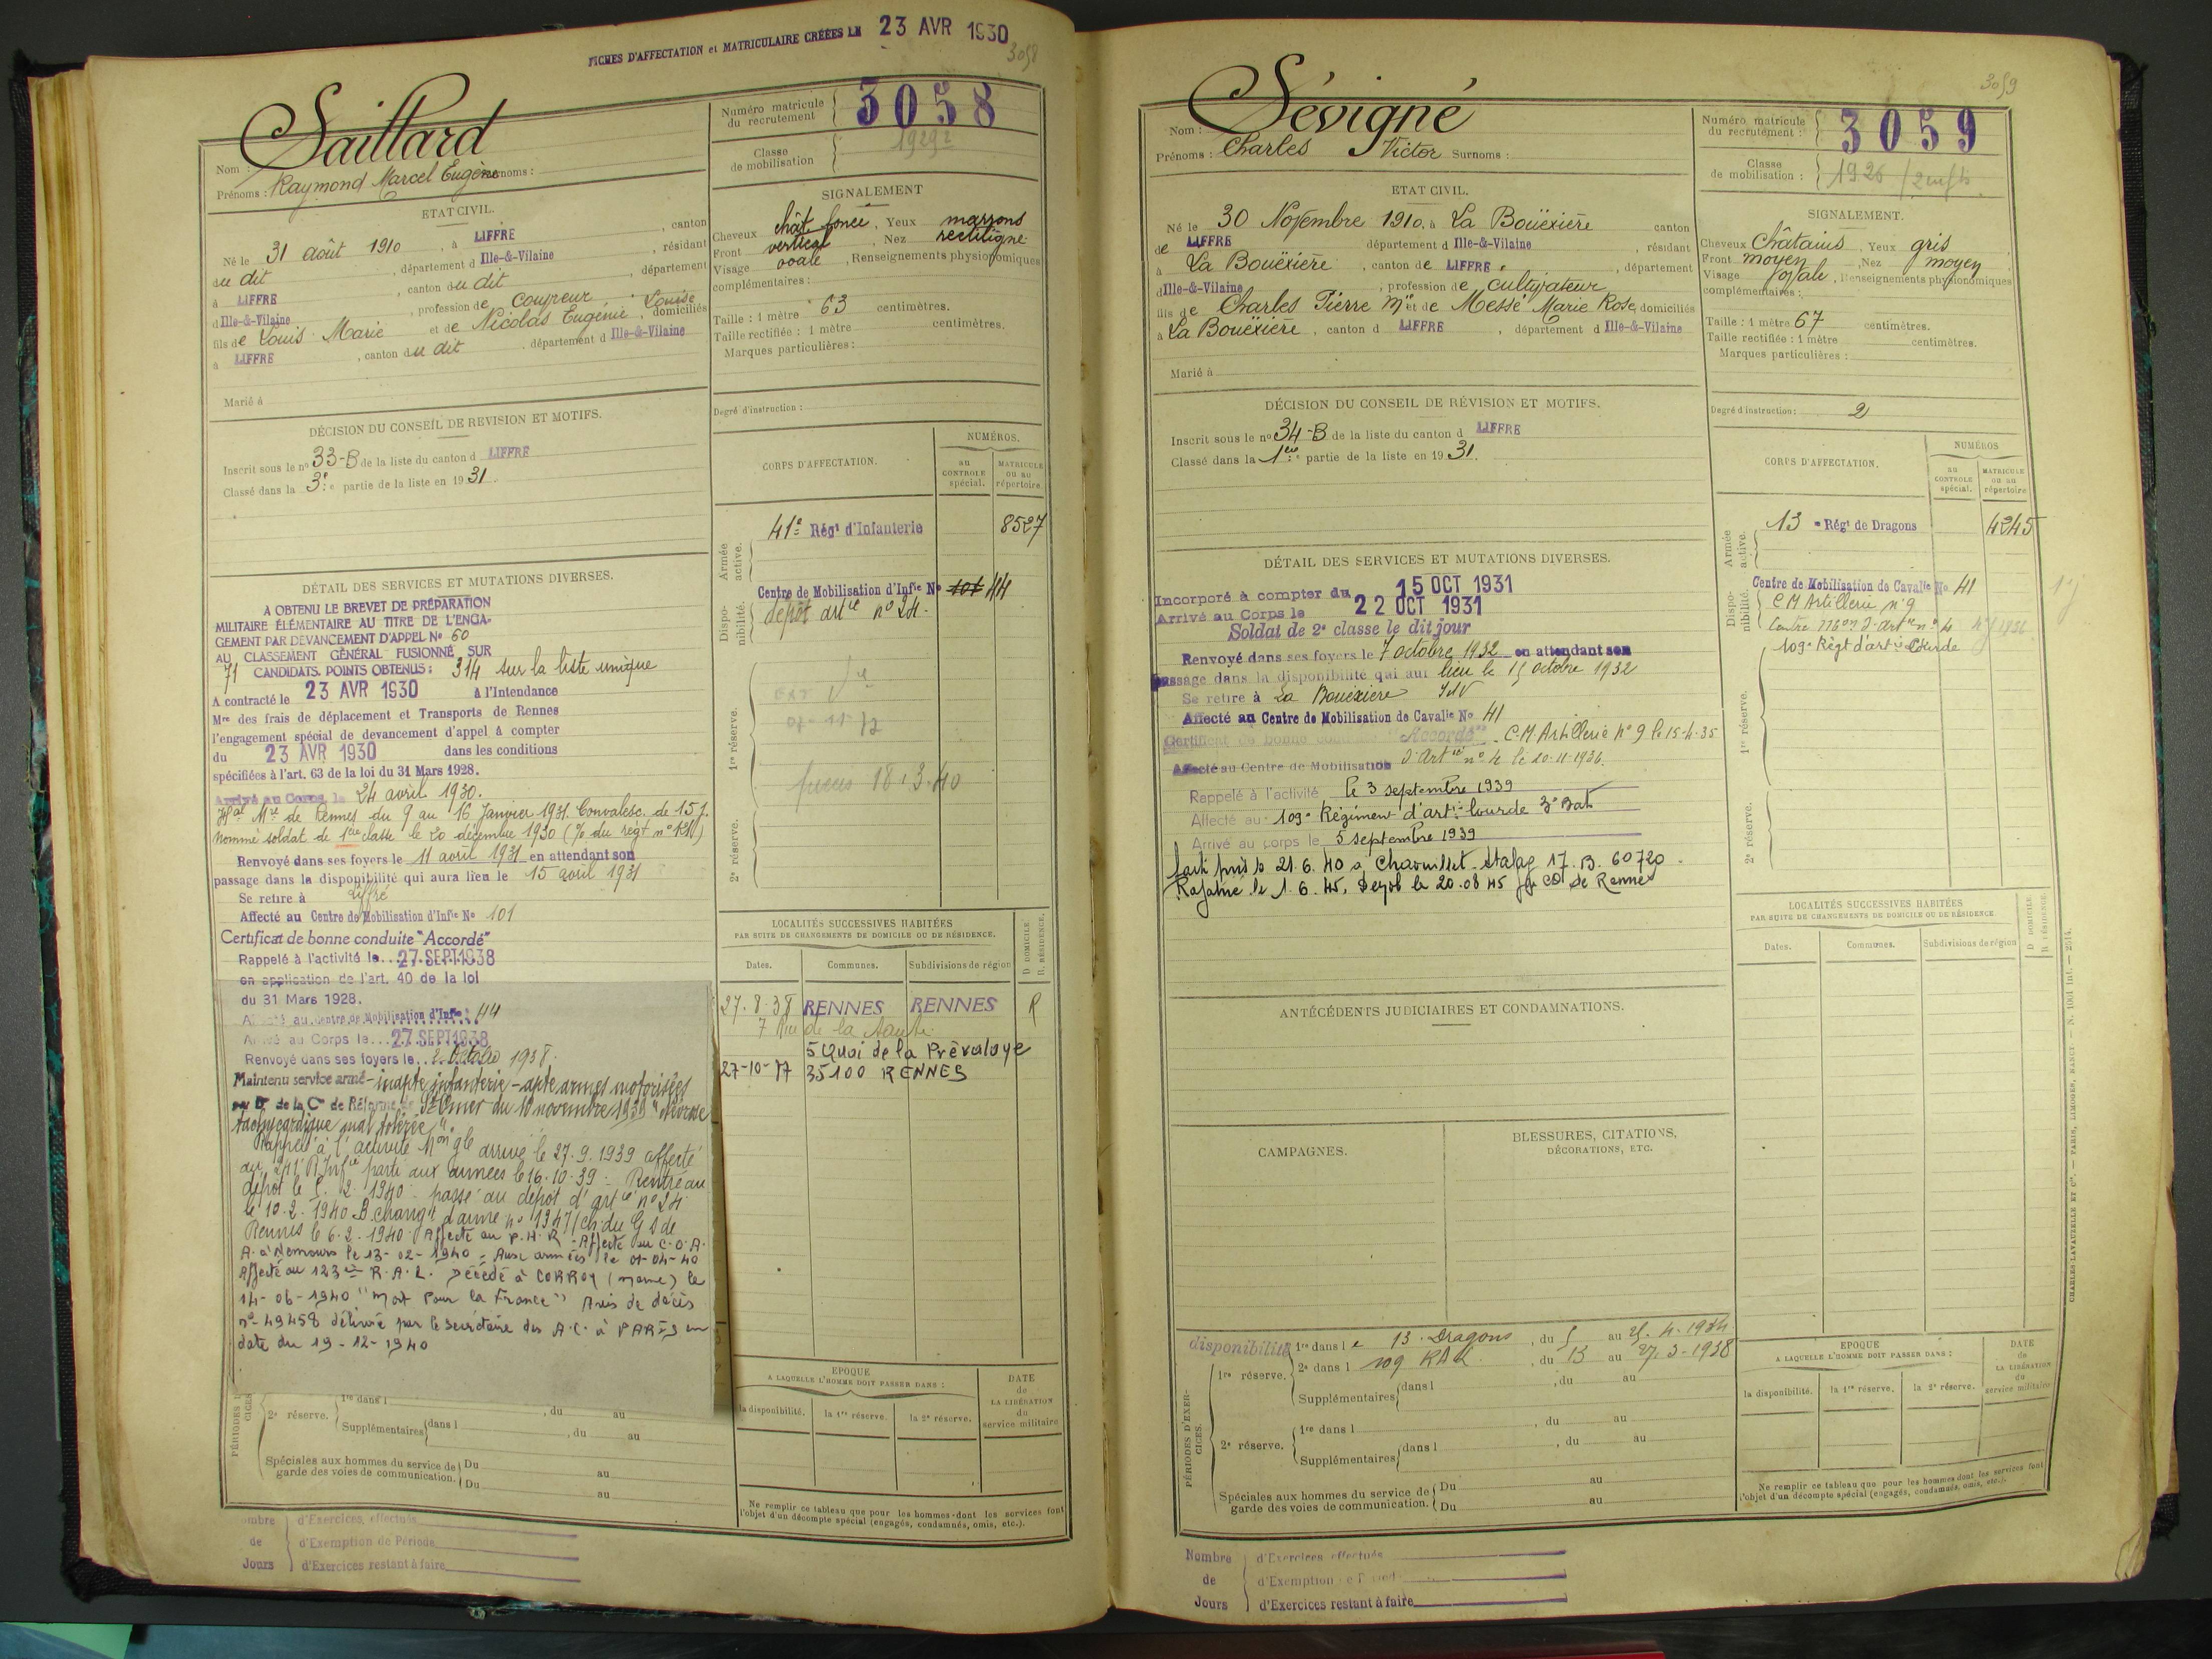 FICHES D'AFFECTATION et MATRICULAIRE CRÉÉES LE 23 AVR 1930
3058
Saillard
Nom :
Prénoms : Raymond Marcel Eugène
Numéro matricule du recrutement
3058
Classe de mobilisation
ETAT CIVIL.
Né le 31 août 1910, à LIFFRE, canton
du dit, département d Ille-&-Vilaine, résidant
à LIFFRE, canton du dit, département
d Ille-&-Vilaine, profession de coupeur
fils de Louis Marie et de Nicolas Eugénie Louise, domiciliés
à LIFFRE, canton du dit, département d Ille-&-Vilaine
Marié à
SIGNALEMENT
Cheveux chât. foncé, Yeux marrons
Front vertical, Nez rectiligne
Visage ovale, Renseignements physionomiques
complémentaires :
Taille : 1 mètre 63 centimètres.
Taille rectifiée : 1 mètre centimètres.
Marques particulières :
Degré d'instruction :
DÉCISION DU CONSEIL DE REVISION ET MOTIFS.
Inscrit sous le n° 33-B de la liste du canton d LIFFRE
Classé dans la 3e partie de la liste en 1931.
CORPS D'AFFECTATION.
NUMÉROS.
au CONTROLE spécial.
MATRICULE ou au répertoire
Armée active.
41e Régt d'Infanterie 8527
Dispo-nibilité.
Centre de Mobilisation d'Infie No 101 44
dépôt artie n° 24.
1re réserve.
2e réserve.
DÉTAIL DES SERVICES ET MUTATIONS DIVERSES.
A OBTENU LE BREVET DE PRÉPARATION
MILITAIRE ÉLÉMENTAIRE AU TITRE DE L'ENGA-
GEMENT PAR DEVANCEMENT D'APPEL No 60
AU CLASSEMENT GÉNÉRAL FUSIONNÉ SUR
71 CANDIDATS. POINTS OBTENUS : 314 sur la liste unique
A contracté le 23 AVR 1930 à l'Intendance
Mre des frais de déplacement et Transports de Rennes
l'engagement spécial de devancement d'appel à compter
du 23 AVR 1930 dans les conditions
spécifiées à l'art. 63 de la loi du 31 Mars 1928.
Arrivé au Corps le 24 avril 1930.
Hal Mre de Rennes du 9 au 16 Janvier 1931. Convalesc. de 15 j.
Nommé soldat de 1ère classe le 20 décembre 1930
Renvoyé dans ses foyers le 11 avril 1931 en attendant son
passage dans la disponibilité qui aura lieu le 15 avril 1931
Se retire à Liffré
Affecté au Centre de Mobilisation d'Infie No 101
Certificat de bonne conduite "Accordé"
Rappelé à l'activité le 27 SEPT 1938
en application de l'art. 40 de la loi
du 31 Mars 1928.
Affecté au Centre de Mobilisation d'Infie 44
Arrivé au Corps le 27 SEPT 1938
Renvoyé dans ses foyers le octobre 1938.
Maintenu service armé - inapte infanterie - apte armes motorisées
par de la Con de Réforme de St Omer du 10 novembre 1939 "névrose
tachycardique mal tolérée"
Rappelé à l'activité Mon gle arrivé le 27.9.1939 affecté
au 241e R.Infie parti aux armées le 16.10.39 - Rentré au
dépôt le 5.2.1940 - passé au dépôt d'artie n° 24
le 10.2.1940
Rennes le 6.2.1940 Affecté au P.H.R - Affecté au C.O.A.
A. à Nemours le 13-02-1940 - Aux armées le 01-04-40
Affecté au 123e R.A.L. Décédé à CORROY (marne) le
14-06-1940 "mort Pour la France" Avis de décès
n° 49458 délivré par le secrétaire des A.C. à PARIS en
date du 19-12-1940
LOCALITÉS SUCCESSIVES HABITÉES
PAR SUITE DE CHANGEMENTS DE DOMICILE OU DE RÉSIDENCE.
Dates. Communes. Subdivisions de région D. DOMICILE R. RÉSIDENCE.
27-8-38 RENNES RENNES R
7 Rue de la Santé
5 Quai de la Prévalaye
27-10-77 35100 RENNES
EPOQUE
A LAQUELLE L'HOMME DOIT PASSER DANS :
DATE de LA LIBÉRATION du service militaire
la disponibilité. la 1re réserve. la 2e réserve.
2e réserve.
1re dans l, du au
Supplémentaires dans l, du au
Spéciales aux hommes du service de garde des voies de communication.
Du au
Du au
Ne remplir ce tableau que pour les hommes dont les services font
l'objet d'un décompte spécial (engagés, condamnés, omis, etc.).
Nombre de Jours
d'Exercices effectués
d'Exemption de Période
d'Exercices restant à faire
3059
Sévigné
Nom :
Prénoms : Charles Victor Surnoms :
Numéro matricule du recrutement :
3059
Classe de mobilisation : 1926
ETAT CIVIL.
Né le 30 Novembre 1910, à La Bouëxière canton
de LIFFRE département d Ille-&-Vilaine, résidant
à La Bouëxière, canton de LIFFRE, département
d Ille-&-Vilaine, profession de cultivateur
fils de Charles Pierre Mie et de Messé Marie Rose, domiciliés
à La Bouëxière, canton d LIFFRE, département d Ille-&-Vilaine
Marié à
SIGNALEMENT.
Cheveux Châtains, Yeux gris
Front moyen, Nez moyen
Visage ovale, Renseignements physionomiques
complémentaires :
Taille : 1 mètre 67 centimètres.
Taille rectifiée : 1 mètre centimètres.
Marques particulières :
Degré d'instruction : 2
DÉCISION DU CONSEIL DE RÉVISION ET MOTIFS.
Inscrit sous le n° 34-B de la liste du canton d LIFFRE
Classé dans la 1ère partie de la liste en 1931.
CORPS D'AFFECTATION.
NUMÉROS
au CONTROLE spécial.
MATRICULE ou au répertoire
Armée active.
13 e Régt de Dragons 4245
Dispo-nibilité.
Centre de Mobilisation de Cavalie No 41
C M Artillerie n° 9
109e Régt d'artie Lourde
1re réserve.
2e réserve.
DÉTAIL DES SERVICES ET MUTATIONS DIVERSES.
Incorporé à compter du 15 OCT 1931
Arrivé au Corps le 22 OCT 1931
Soldat de 2e classe le dit jour
Renvoyé dans ses foyers le 7 octobre 1932 en attendant son
passage dans la disponibilité qui aur lieu le 15 octobre 1932
Se retire à La Bouëxière
Affecté au Centre de Mobilisation de Cavalie No 41
Certificat de bonne conduite "Accordé" C.M Artillerie N° 9 le 15-4-35
Affecté au Centre de Mobilisation d'Artie n° 4 le 20-11-1936.
Rappelé à l'activité le 3 septembre 1939
Affecté au 109e Régiment d'artie lourde 3e Bat
Arrivé au corps le 5 septembre 1939
fait pris le 21.6.40 à Charmillet Stalag 17.B. 60720
Rapatrié le 1.6.45, Demob le 20.08.45 par CD de Rennes
LOCALITÉS SUCCESSIVES HABITÉES
PAR SUITE DE CHANGEMENTS DE DOMICILE OU DE RÉSIDENCE.
Dates. Communes. Subdivisions de région D. DOMICILE R. RÉSIDENCE
ANTÉCÉDENTS JUDICIAIRES ET CONDAMNATIONS.
CAMPAGNES.
BLESSURES, CITATIONS,
DÉCORATIONS, ETC.
PÉRIODES D'EXER-CICES.
disponibilité
1re réserve.
1re dans le 13 Dragons, du 5 au 25.4.1934
2e dans l 109 RAL, du 13 au 27-3-1938
Supplémentaires dans l, du au
2e réserve.
1re dans l, du au
Supplémentaires dans l, du au
Spéciales aux hommes du service de garde des voies de communication.
Du au
Du au
EPOQUE
A LAQUELLE L'HOMME DOIT PASSER DANS :
DATE de LA LIBÉRATION du service militaire
la disponibilité. la 1re réserve. la 2e réserve.
Ne remplir ce tableau que pour les hommes dont les services font
l'objet d'un décompte spécial (engagés, condamnés, omis, etc.).
CHARLES-LAVAUZELLE ET Cie. — PARIS, LIMOGES, NANCY. — N. 1001 int. — 2514.
Nombre de Jours
d'Exercices effectués
d'Exemption de Période
d'Exercices restant à faire